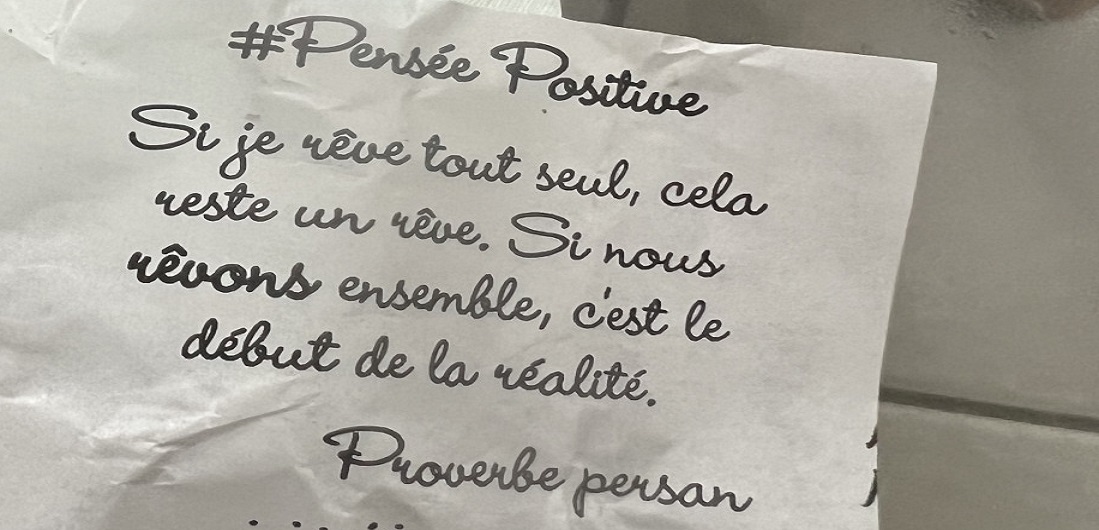 #Pensée Positive
Si je rêve tout seul, cela
reste un rêve. Si nous
rêvons ensemble, c'est le
début de la réalité.
Proverbe persan